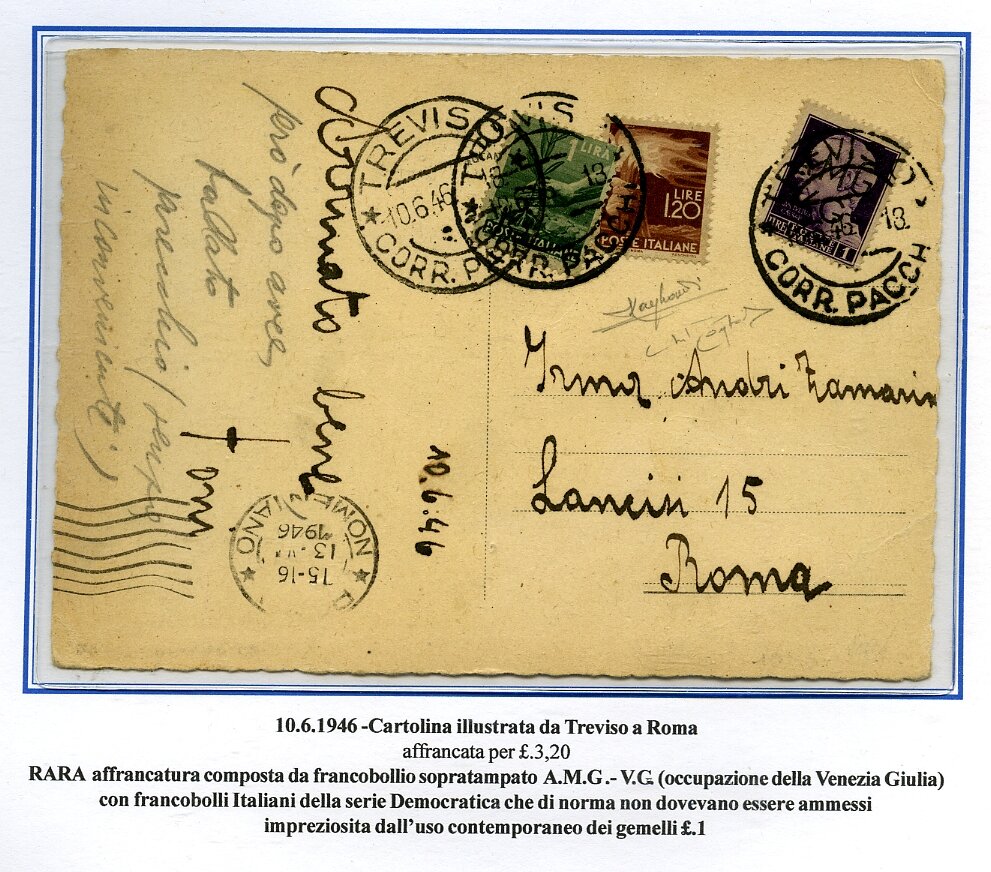 TREVISO
10.6.46
CORR. PACCHI
TREVISO
18.
CORR. PACCHI
1 LIRA
POSTE ITALIANE
LIRE
1.20
POSTE ITALIANE
TREVISO
18.
CORR. PACCHI
A.M.G.
V.G.
1
però dopo aver
ballato
parecchio
inconvenienti)
bene
10.6.46
15-16
13
1946
Irma Andri Zamarin
Lancisi 15
Roma
10.6.1946 -Cartolina illustrata da Treviso a Roma
affrancata per £.3,20
RARA affrancatura composta da francobollio sopratampato A.M.G.- V.G. (occupazione della Venezia Giulia)
con francobolli Italiani della serie Democratica che di norma non dovevano essere ammessi
impreziosita dall'uso contemporaneo dei gemelli £.1